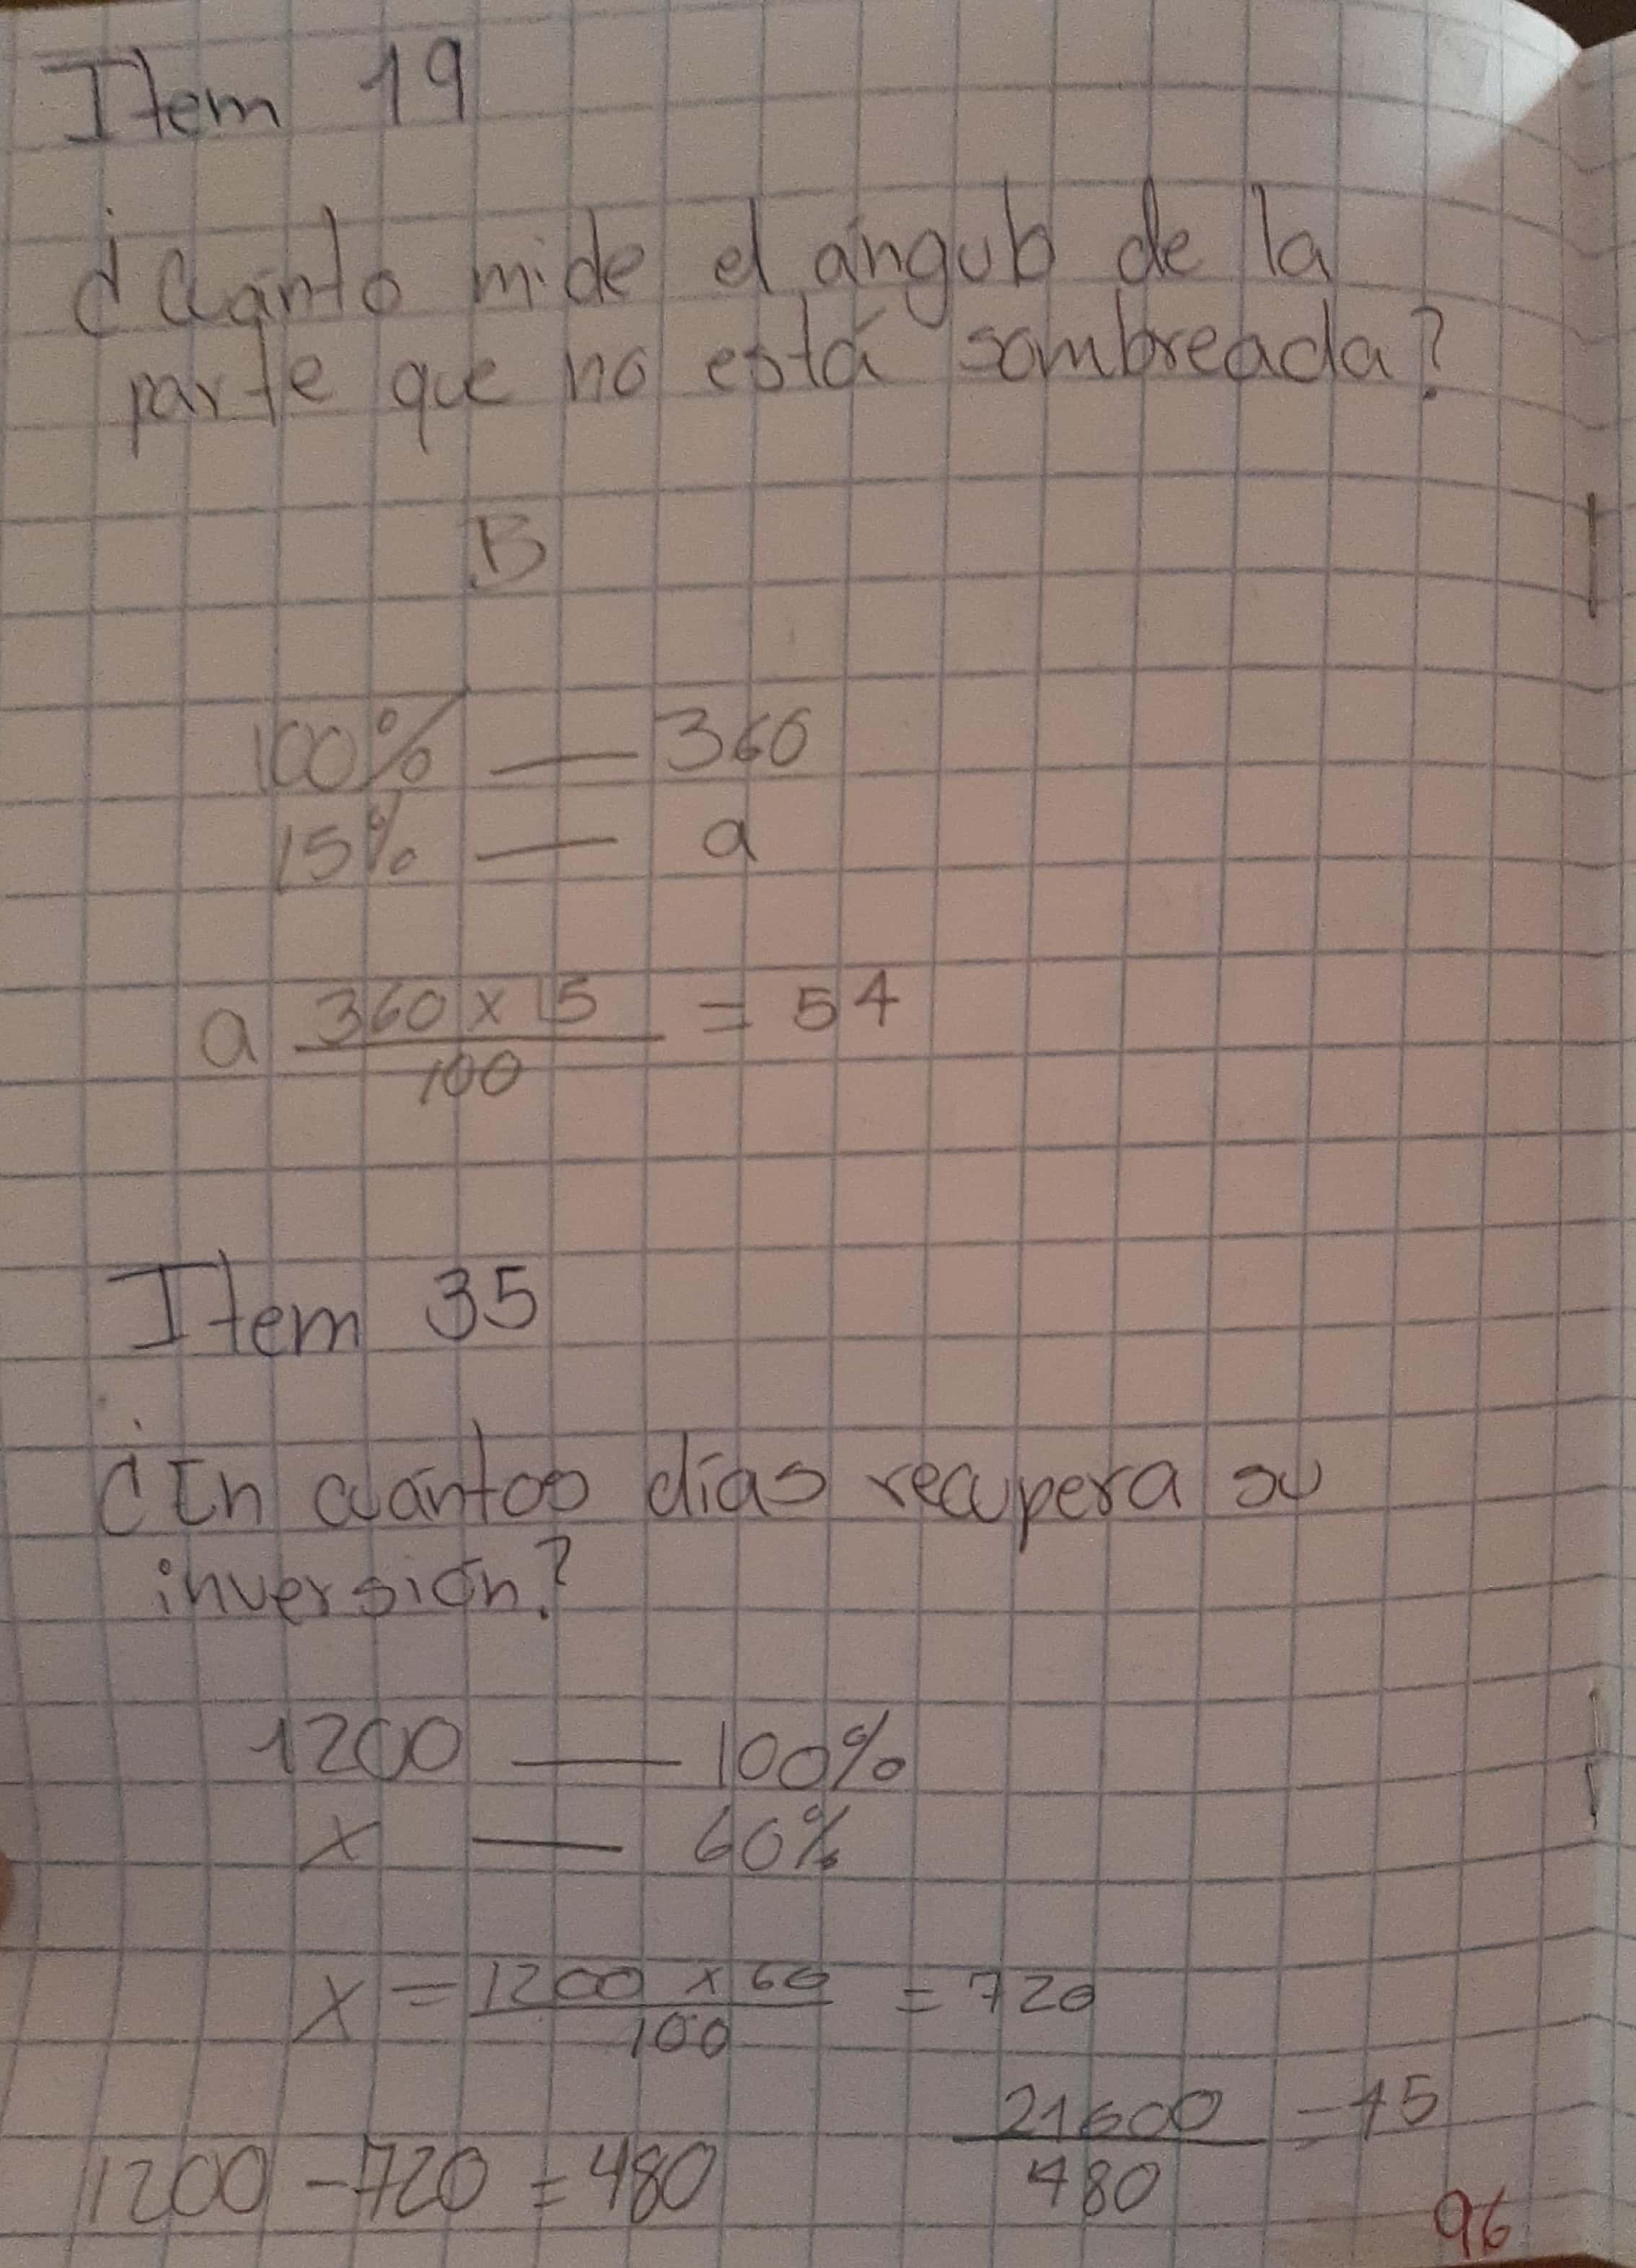 Item 19
¿Cuánto mide el ángulo de la
parte que no está sombreada?
B
100% — 360
15% — a
a 360 x 15 / 100 = 54
Item 35
¿En cuántos días recupera su
inversión?
1200 — 100%
x — 60%
x = 1200 x 60 / 100 = 720
21600 / 480 = 45
1200 - 720 = 480
96